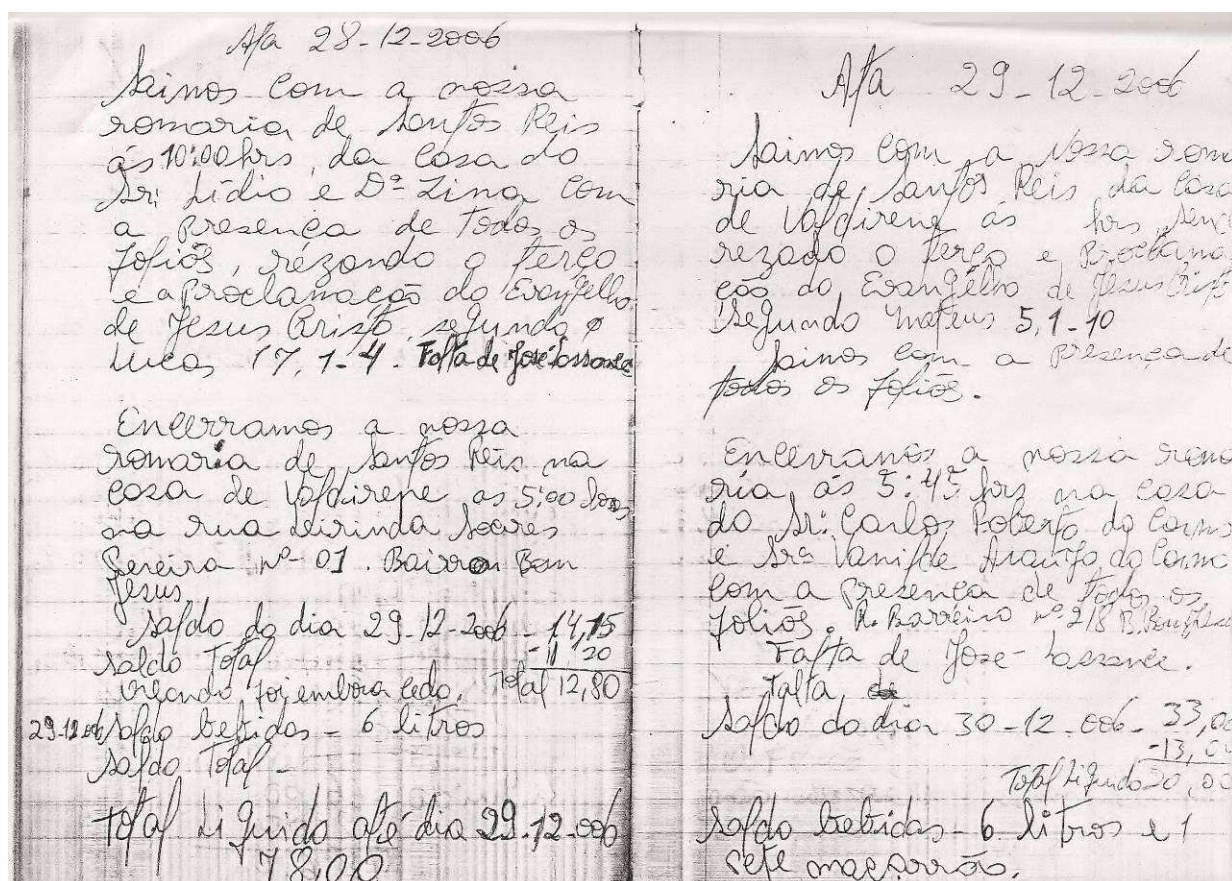 Ata 28-12-2006
Saimos com a nossa
romaria de Santos Reis
ás 10:00 hrs, da casa do
Sr: Lídio e Dª Zina com
a presença de todos os
foliõs, rezando o terço
e a Proclamação do Evangelho
de Jesus Cristo, segundo
Lucas 17, 1-4. Falta de José Lassance
Encerramos a nossa
romaria de Santos Reis na
casa de Valdirene as 5:00 horas
na rua Soares
Pereira nº 01. Bairro Bom
Jesus.
Saldo do dia 29-12-2006 -
Saldo Total
foi embora cedo. Total 12,80
29-12-006 Saldo bebidas - 6 litros
Saldo Total -
Total Liguido até dia 29-12-006
78,00
Ata 29-12-2006
Saimos com a Nossa roma
ria de Santos Reis da casa
de Valdirene ás hrs, sen
rezado o terço e Proclama
ção do Evangélho de Jesus Crist
Segundo Mateus 5, 1-10
Saimos com a presença de
todos os foliõs.
Encerramos a nossa roma
ria, ás 5:45 hrs na casa
do Sr: Carlos Roberto do Carm
e Srª Vanilde Araújo do Carm
com a presença de todos os
foliõs. R. Barreiro nº 218 B. Bom Jesus
Falta de Jose - Lassance.
Falta
Saldo do dia 30-12-006 - 33,00
-13,0
Total Liguido 20,00
Saldo bebidas - 6 litros e 1
sete macarrão.